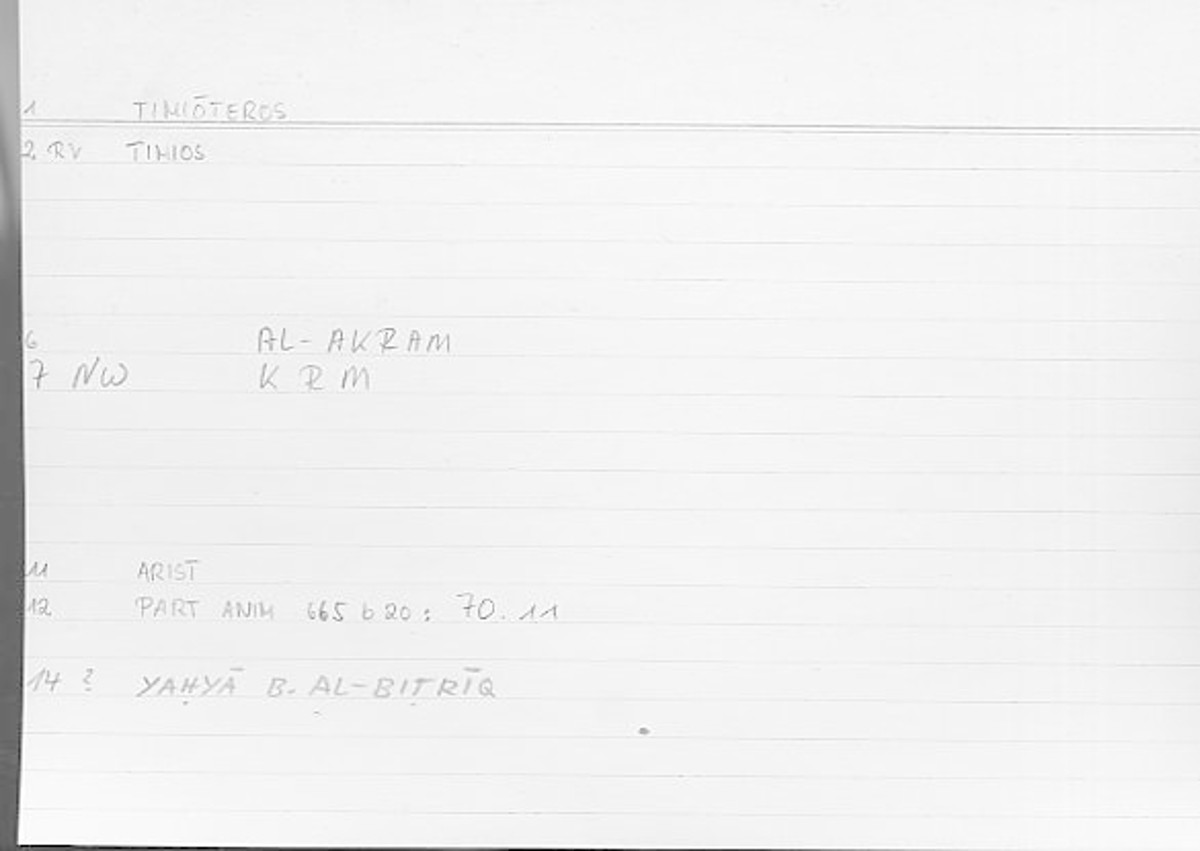 1 TIMIŌTEROS
2 RV TIMIOS
6 AL-AKRAM
7 NW K R M
11 ARIST
12 PART ANIM 665 b 20 : 70. 11
14 ? YAḤYĀ B. AL-BIṬRĪQ